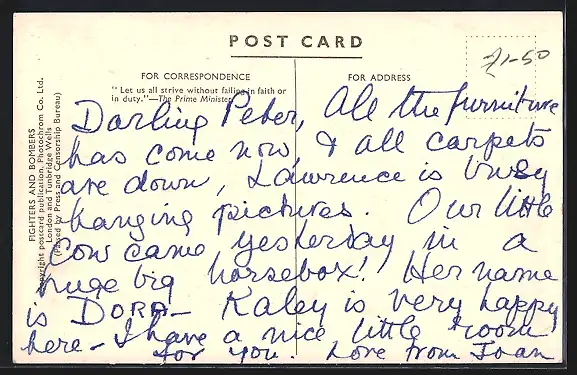 POST CARD
£1-50
FOR CORRESPONDENCE
FOR ADDRESS
"Let us all strive without failing in faith or
in duty."—The Prime Minister.
FIGHTERS AND BOMBERS
copyright postcard publication, Photochrom Co. Ltd.
London and Tunbridge Wells
(Passed by Press and Censorship Bureau)
Darling Peter, All the furniture
has come now, & all carpets
are down, Lawrence is busy
hanging pictures. Our little
Cow came yesterday in a
huge big horsebox! Her name
is DORA— Kaley is very happy
here - I have a nice little room
for you. Love from Joan